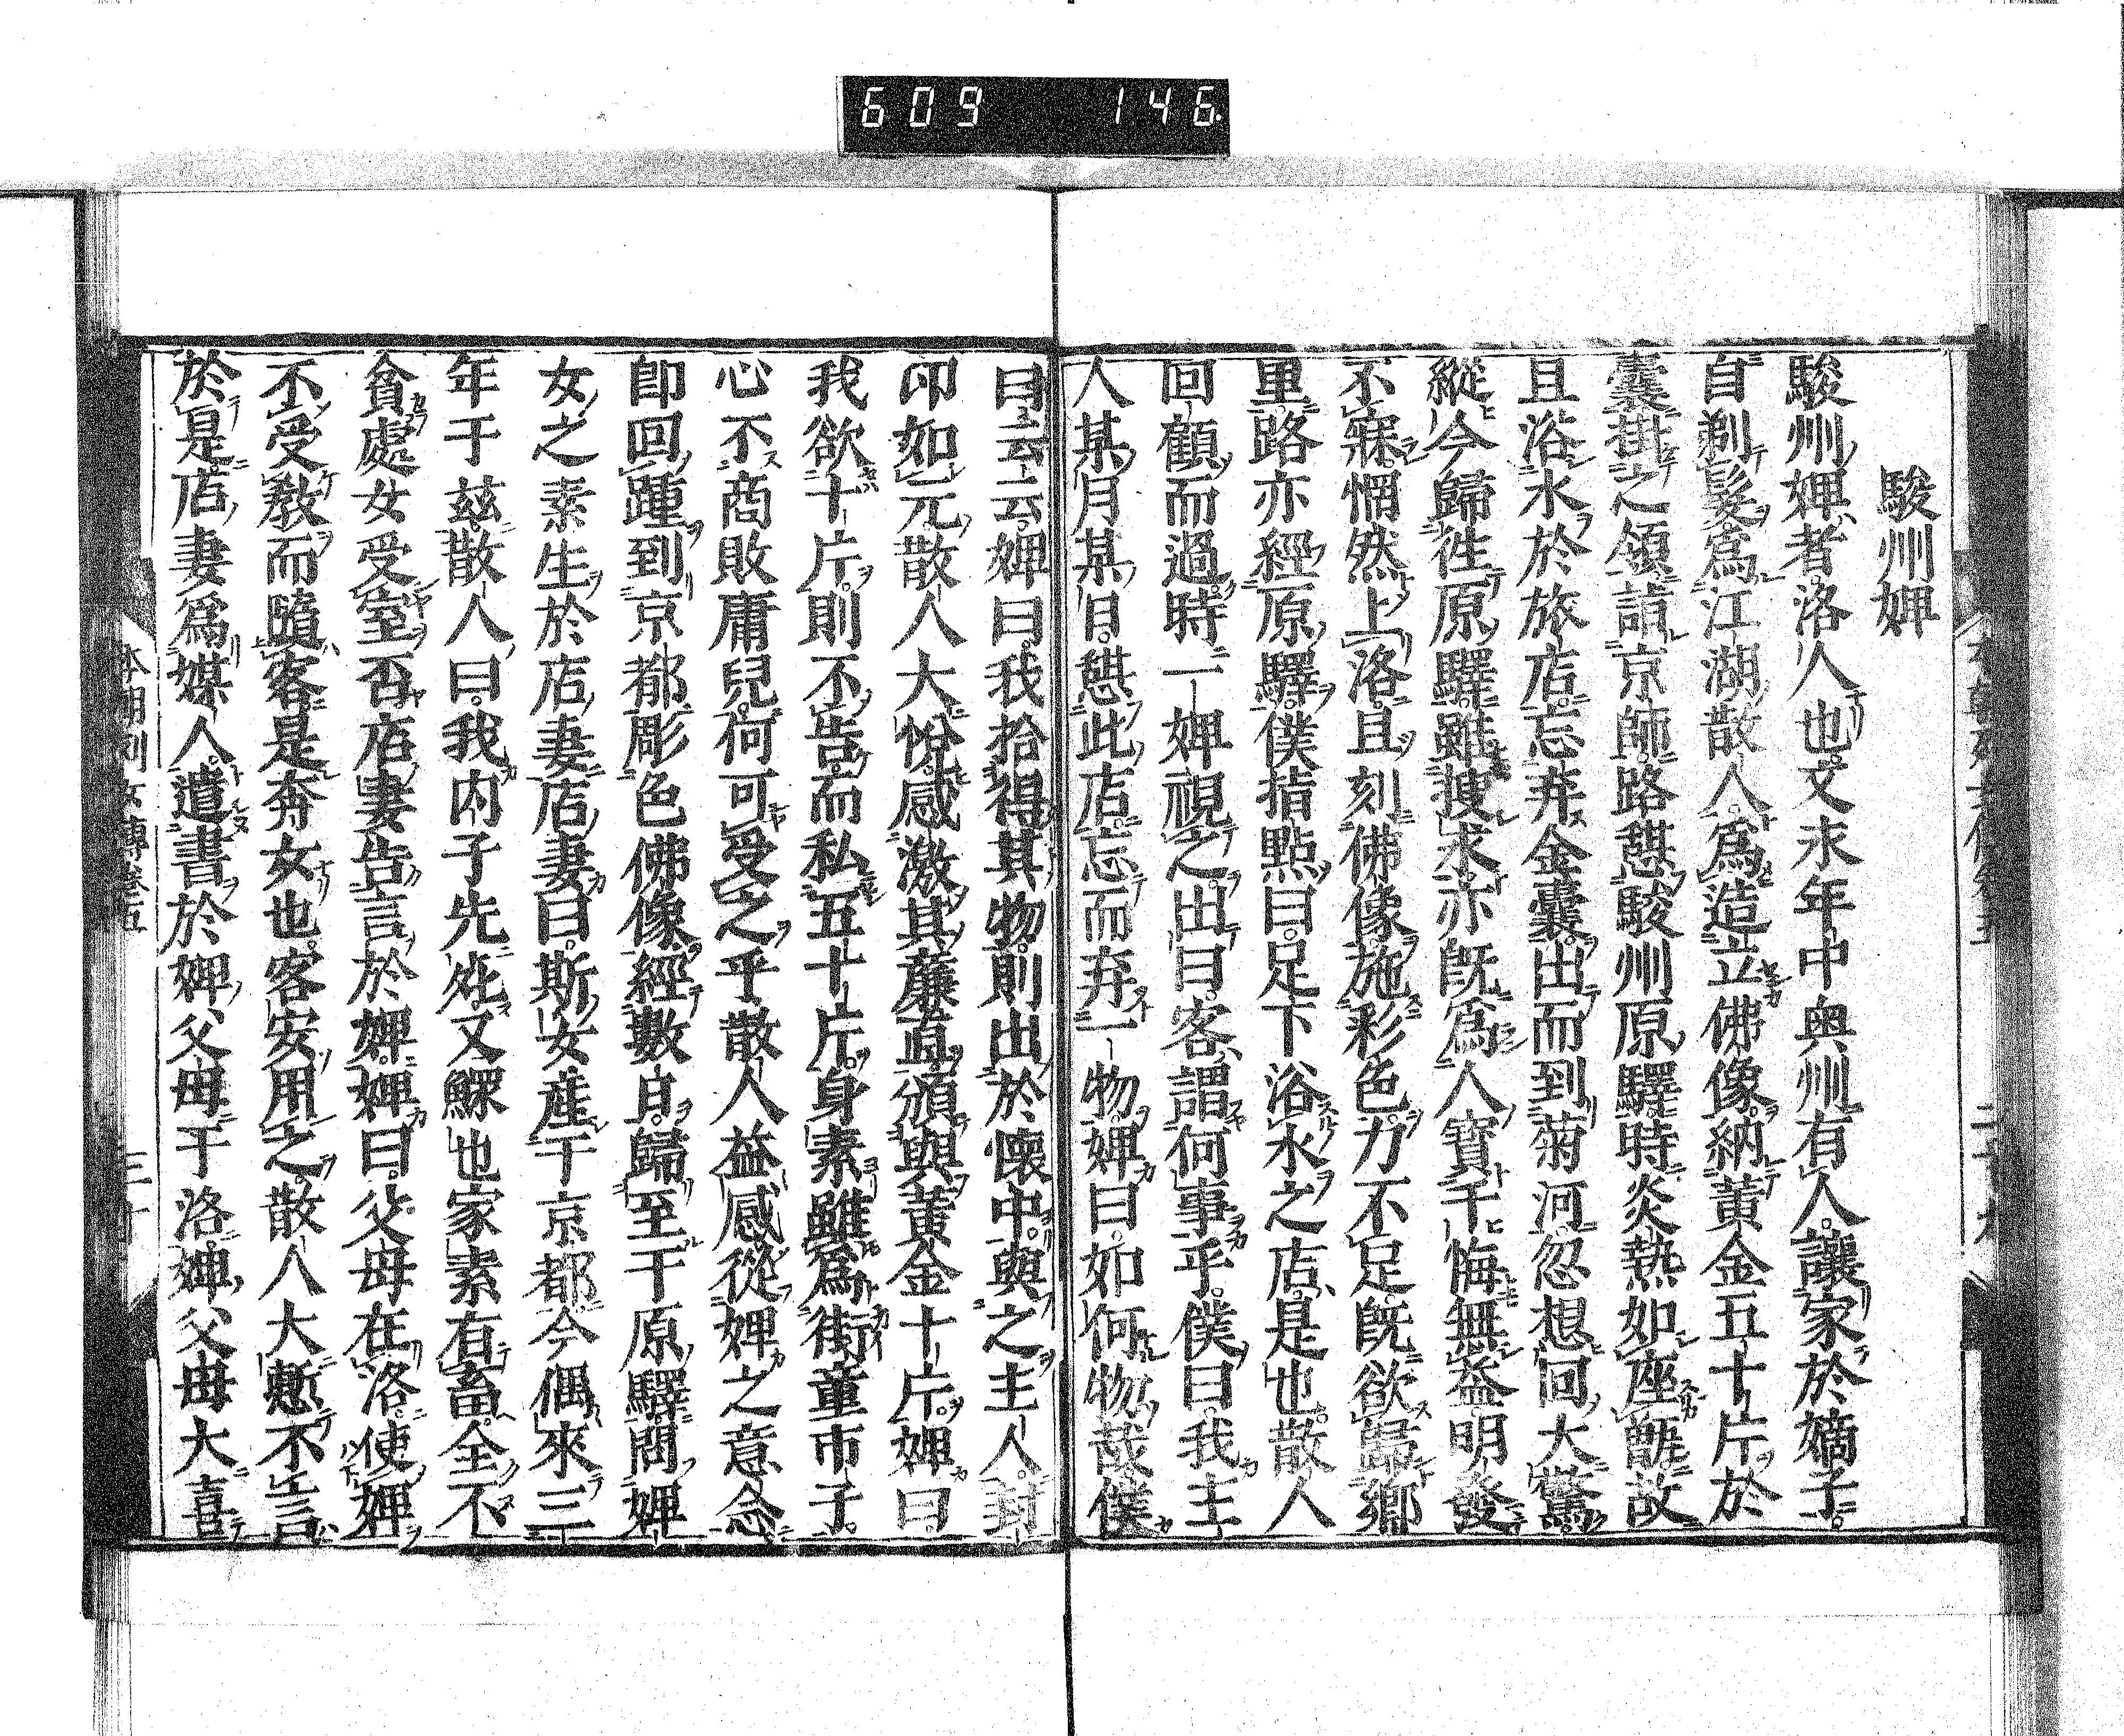 609 146
駿州婢
駿州婢者洛人也文永年中奥州有人讓家於嫡子
自剃髮爲江湖散人爲造立佛像納黃金五十片於
囊掛之領詣京師路憇駿州原驛時炎熱如座甑故
且浴水於旅店忘弃金囊出而到菊河忽想回大驚
縱今歸徃原驛雖捜求亦旣爲人寶千悔無益明發
不寐惘然上洛且刻佛像施彩色力不足旣欲歸鄉
重路亦經原驛僕指點曰足下浴水之店是也散人
回顧而過時一婢視之出曰客謂何事乎僕曰我主
人某月某日憇此店忘而弃一物婢曰如何物哉僕
曰云云婢曰我拾得其物則出於懷中與之主人封
印如元散人大悅感激其廉直頒與黃金十片婢曰
我欲十片則不告而私五十片身素雖爲街童市子
心不商敗庸兒何可受之乎散人益感從婢之意念
卽回踵到京都彫色佛像經數日歸至于原驛問婢
女之素生於店妻店妻曰斯女産于京都今偶來三
年于茲散人曰我内子先死又鰥也家素有畜全不
貧處女受室否店妻告言於婢婢曰父母在洛使婢
不受敎而隨客是奔女也客安用之散人大慙不言
於是店妻爲媒人遣書於婢父母于洛婢父母大喜
本朝列女傳卷五 三十